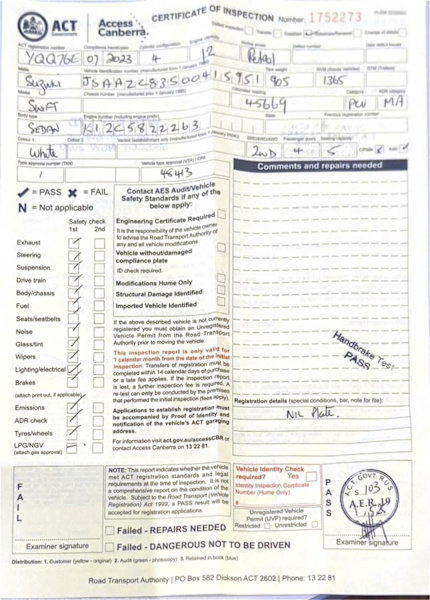 ACT
Access Canberra
CERTIFICATE OF INSPECTION Number: 1752273
ACT registration number
Compliance month/year
Cylinder configuration
YQQ76E 07 2023 4 1.2 Petrol
Make
Vehicle identification number (manufactured from 1 January 1989)
Tare weight
Suzuki JSAAZC83S00415951 905 1365
Model
Odometer reading
Swift 45669 PW MA
Body type
Engine number (including engine prefix)
State
Previous registration number
SEDAN K12C5822263
Colour 1
Colour 2
White 2WD 4 5
Type approval number (TAN)
Vehicle type approval (VTA) / CPA
1 48413
Comments and repairs needed
✓ = PASS ✗ = FAIL
N = Not applicable
Safety check
1st 2nd
Exhaust
Steering
Suspension
Drive train
Body/chassis
Fuel
Seats/seatbelts
Noise
Glass/tint
Wipers
Lighting/electrical
Brakes
(attach print out, if applicable)
Emissions
ADR check
Tyres/wheels
LPG/NGV
(attach gas approval)
Contact AES Audit/Vehicle
Safety Standards if any of the
below apply:
Engineering Certificate Required
It is the responsibility of the vehicle owner
to advise the Road Transport Authority of
any and all vehicle modifications.
Vehicle without/damaged
compliance plate
ID check required.
Modifications Hume Only
Structural Damage Identified
Imported Vehicle Identified
If the above described vehicle is not currently
registered you must obtain an Unregistered
Vehicle Permit from the Road Transport
Authority prior to moving the vehicle.
This inspection report is only valid for
1 calendar month from the date of the initial
inspection. Transfers of registration must be
completed within 14 calendar days of purchase
or a late fee applies. If the inspection report
is lost, a further inspection fee is required. A
re-test can only be conducted by the premises
that performed the initial inspection (fees apply).
Applications to establish registration must
be accompanied by Proof of Identity and
notification of the vehicle's ACT garaging
address.
For information visit act.gov.au/accessCBR or
contact Access Canberra on 13 22 81.
Handbrake Test
PASS
Registration details (special conditions, bar, note for file):
NIL Plate.
FAIL
Examiner signature
NOTE: This report indicates whether the vehicle
met ACT registration standards and legal
requirements at the time of inspection. It is not
a comprehensive report on the condition of the
vehicle. Subject to the Road Transport (Vehicle
Registration) Act 1999, a PASS result will be
accepted for registration applications.
Failed - REPAIRS NEEDED
Failed - DANGEROUS NOT TO BE DRIVEN
Vehicle Identity Check
required? Yes
Identity Inspection Certificate
Number (Hume Only)
Unregistered Vehicle
Permit (UVP) required?
Restricted Unrestricted
PASS
ACT GOVT. R.U.S.
S.103
A.E.R.19
Examiner signature
Distribution: 1. Customer (yellow - original) 2. Audit (green - photocopy) 3. Retained in book (blue)
Road Transport Authority | PO Box 582 Dickson ACT 2602 | Phone: 13 22 81